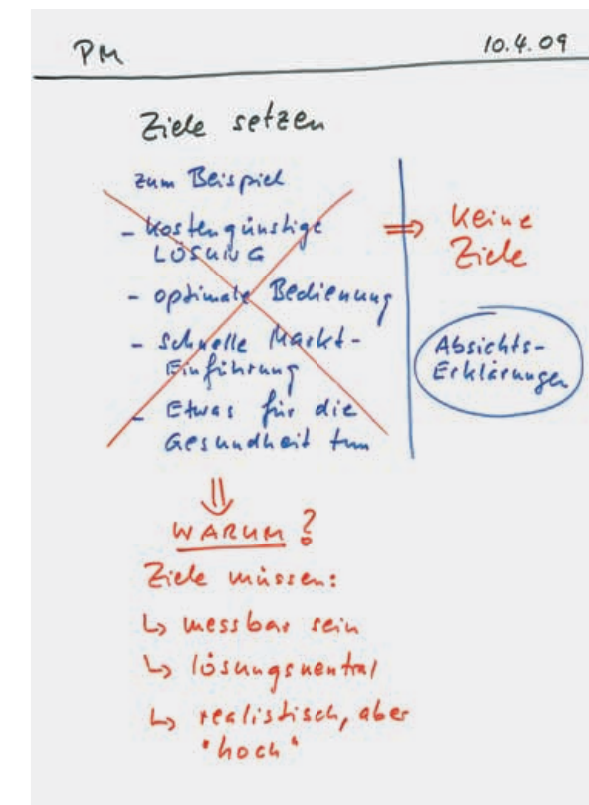 PM 10.4.09
Ziele setzen
zum Beispiel
- kostengünstige
LÖSUNG
- optimale Bedienung
- schnelle Markt-
Einführung
- Etwas für die
Gesundheit tun
⇒ keine
Ziele
Absichts-
Erklärungen
⇓
WARUM?
Ziele müssen:
↳ messbar sein
↳ lösungsneutral
↳ realistisch, aber
"hoch"